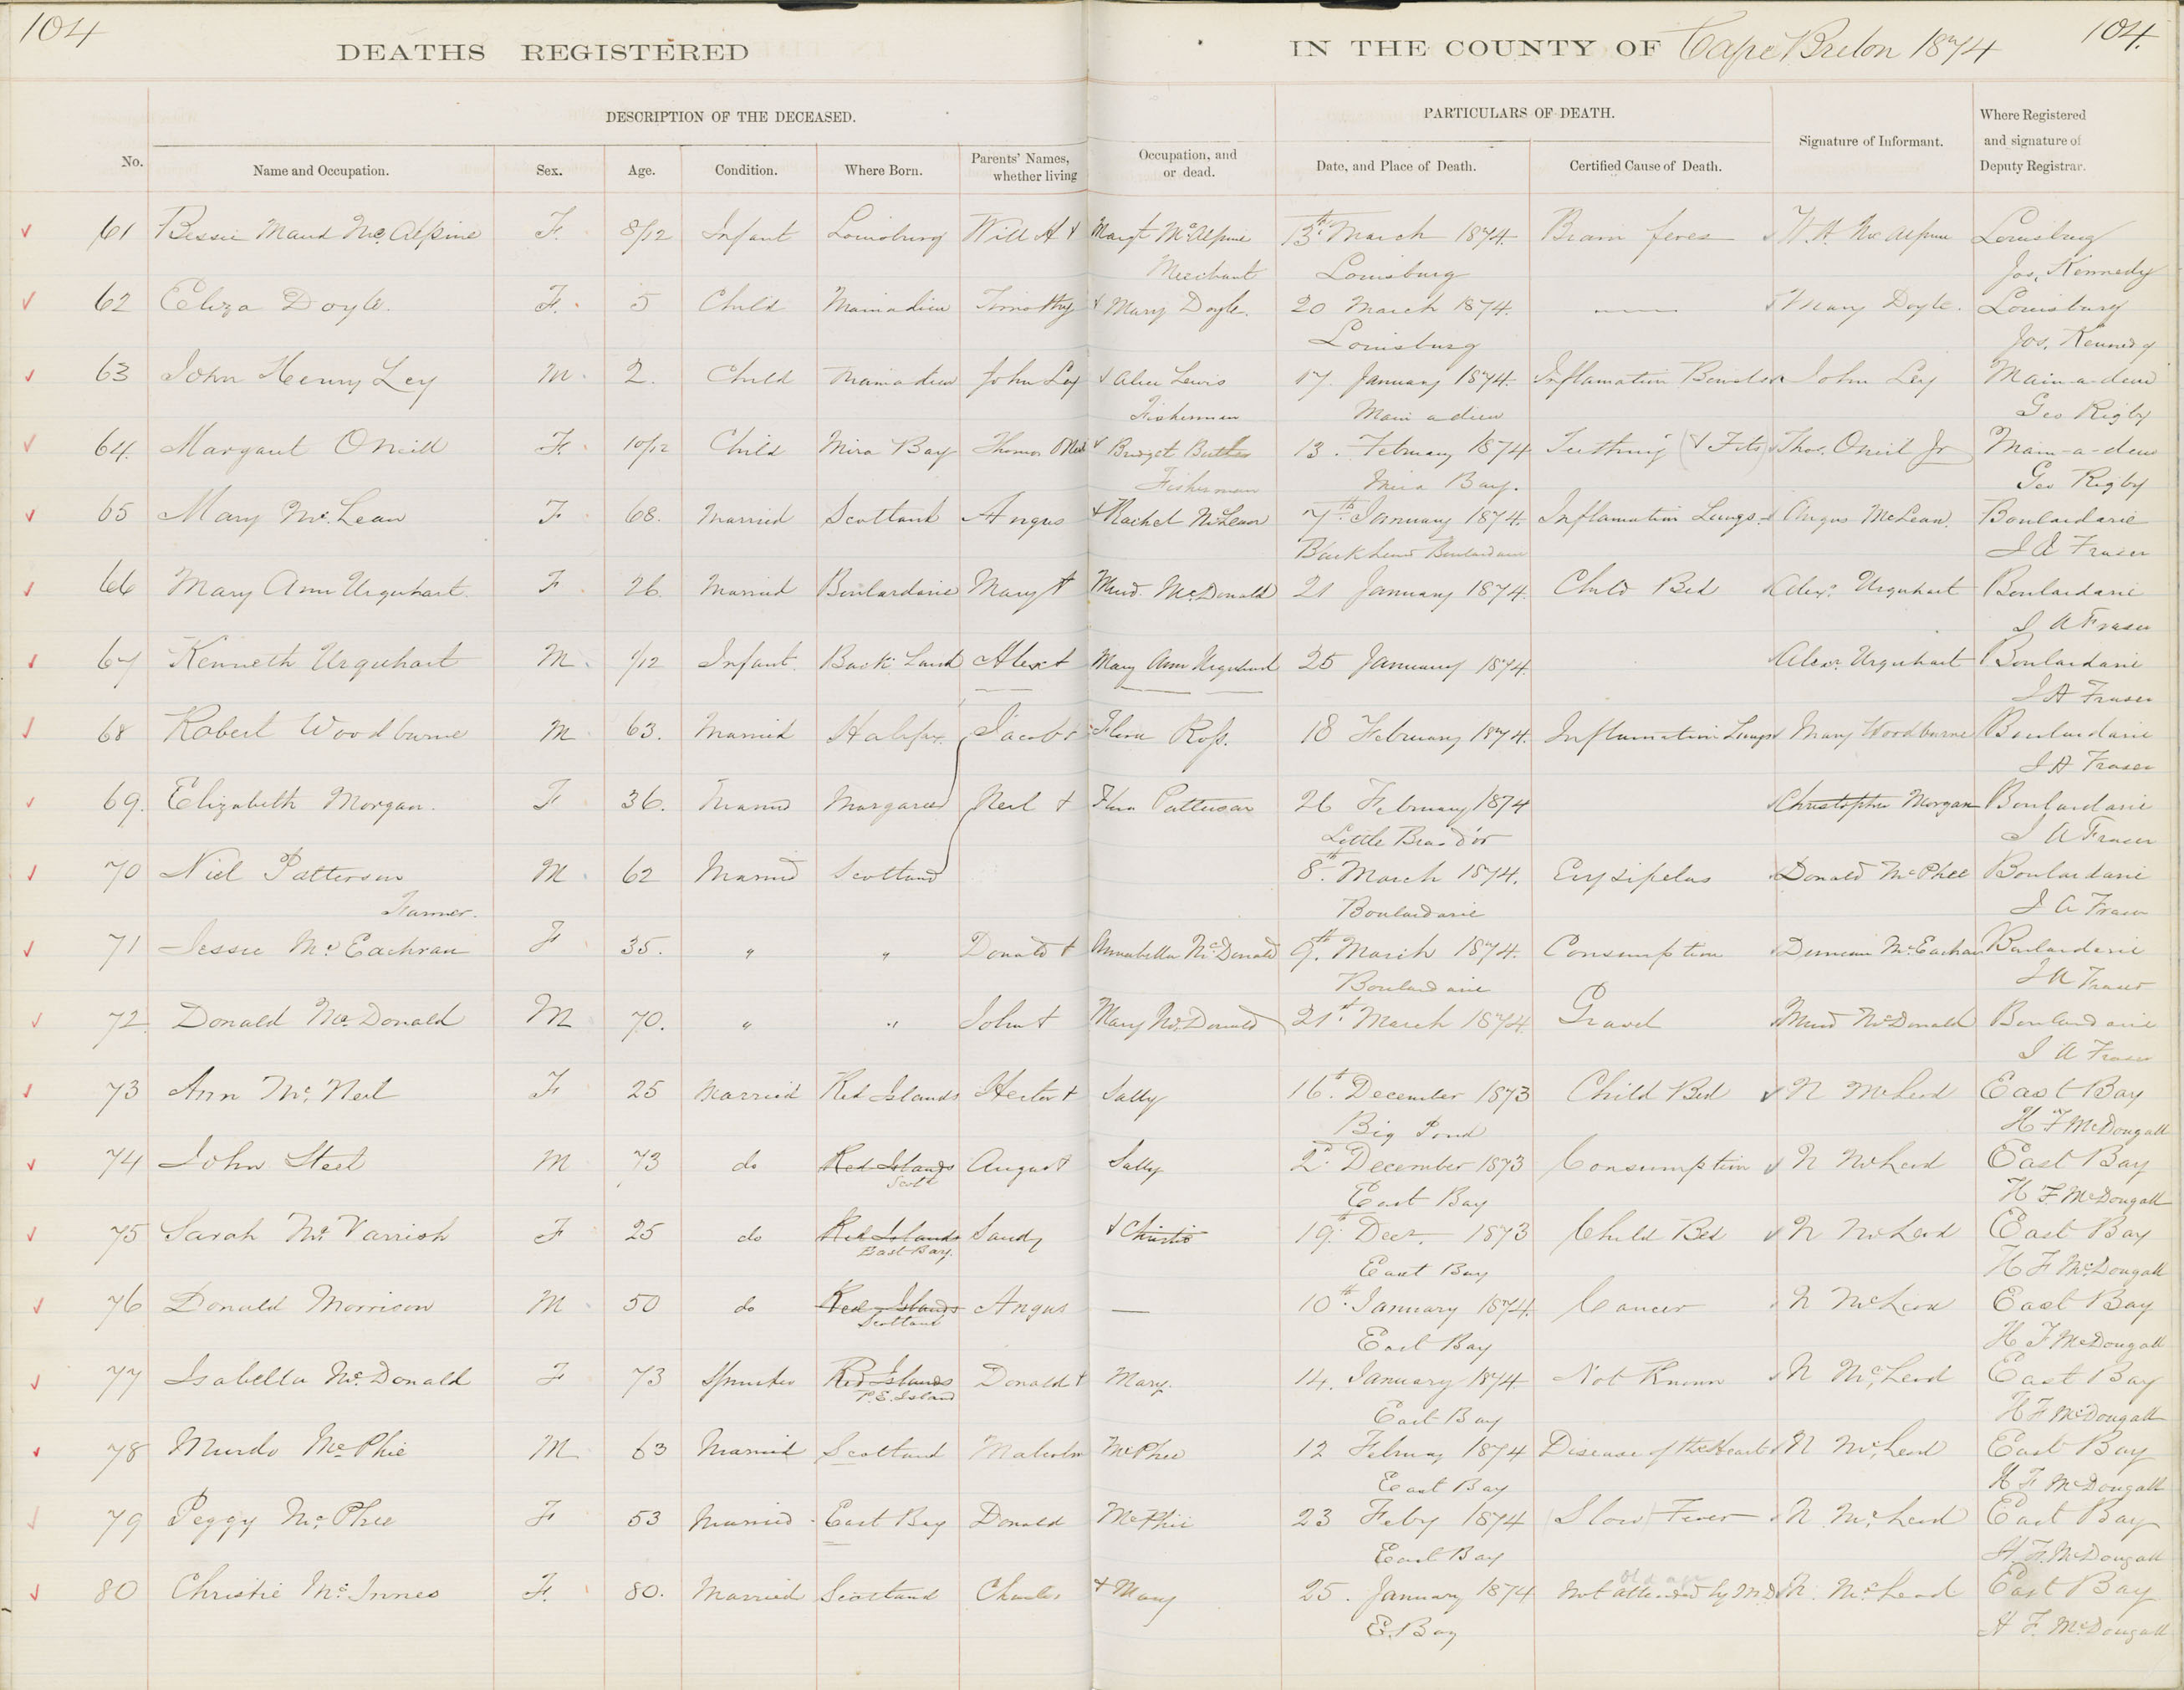 104
104.
DEATHS REGISTERED IN THE COUNTY OF Cape Breton 1874
DESCRIPTION OF THE DECEASED. PARTICULARS OF DEATH.
No. Name and Occupation. Sex. Age. Condition. Where Born. Parents' Names, whether living Occupation, and or dead. Date, and Place of Death. Certified Cause of Death. Signature of Informant. Where Registered and signature of Deputy Registrar.
61 Bessie Maud Mc Alpine F. 8/12 Infant Louisburg Will A + Margt McAlpine 13th March 1874. W. A. Mc Alpine Louisburg
Merchant Louisburg Jos. Kennedy
62 Eliza Doyle. F. 5 Child Mainadieu Timothy + Mary Doyle. 20 March 1874. Mary Doyle. Louisburg
Louisburg Jos. Kennedy
63 John Henry Ley M. 2. Child Mainadieu John Ley + Alice Lewis 17. January 1874. Inflamation Bowels John Ley Main-a-dieu
Fisherman Main a dieu Geo Rigby
64. Margaret ONeill F. 10/12 Child Mira Bay Thomas ONeil + Bridget Butler 13. February 1874 Teething (+ Fits) Thos. Oneil Jr Main-a-dieu
Fisherman Mira Bay. Geo Rigby
65 Mary Mc Lean F 68. Married Scotland Angus + Rachel McLean 7th January 1874. Inflamation Lungs. Angus McLean. Boulardarie
Back Land Boulardarie J A Fraser
66 Mary Ann Urquhart. F 26. Married Boulardarie Mary + Murd. McDonald 21 January 1874. Child Bed Alexr Urquhart Boulardarie
J A Fraser
67 Kenneth Urquhart M. 1/12 Infant. Back Land Alex + Mary Ann Urquhart 25 January 1874. Alexr Urquhart Boulardarie
J A Fraser
68 Robert Woodburne M 63. Married Halifax. Jacob + Flora Ross. 18 February 1874. Inflamation Lungs Mary Woodburne Boulardarie
J A Fraser
69. Elizabeth Morgan. F 36. Married Margaree Neil + Flora Patterson 26 February 1874 Christopher Morgan Boulardarie
Little Bras d'or J A Fraser
70 Niel Patterson M. 62 Married Scotland 8th March 1874. Erysipelas Donald McPhee Boulardarie
Farmer. Boulardarie J A Fraser
71 Jessie Mc Eachran F 35. " " Donald + Annabella McDonald 9th March 1874. Consumption Duncan McEachran Boulardarie
Boulardarie J A Fraser
72 Donald McDonald M 70. " " John + Mary McDonald 21st March 1874. Gravel Murd McDonald Boulardarie
J A Fraser
73 Ann Mc Neil F 25 Married Red Islands Hector + Sally 16th December 1873 Child Bed N McLeod East Bay
Big Pond H F McDougall
74 John Steel M 73 do Red Islands August Sally 2d December 1873 Consumption N McLeod East Bay
Scotd East Bay H F McDougall
75 Sarah Mc Varrish F 25 do Red Islands Sandy + Christie 19th Decr. 1873 Child Bed N McLeod East Bay
East Bay. East Bay H F McDougall
76 Donald Morrison M 50 do Red Islands Angus — 10th January 1874. Cancer N McLeod East Bay
Scotland East Bay H F McDougall
77 Isabella McDonald F 73 Spinster Red Islands Donald + Mary. 14. January 1874. Not Known N McLeod East Bay
P.E. Island East Bay H F McDougall
78 Murdo McPhie M 63 Married Scotland Malcolm McPhee 12 February 1874 Disease of the Heart N McLeod East Bay
East Bay H F McDougall
79 Peggy McPhee F 53 Married East Bay Donald McPhie 23 Feby 1874 Slow Fever N. McLeod East Bay
East Bay H. F. McDougall
80 Christie Mc Innes F. 80. Married Scotland Charles + Mary 25. January 1874 Not attended by M.D. Old age N. McLeod East Bay
E. Bay H F. McDougall